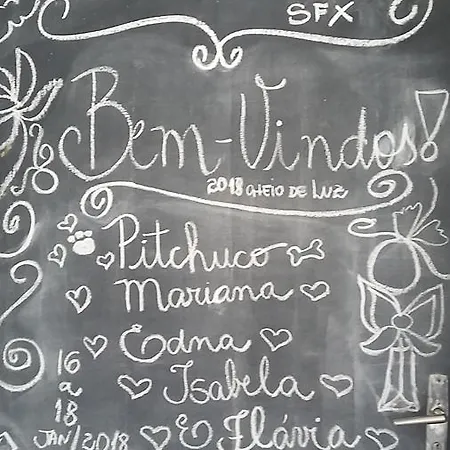 SFX
Bem-Vindos!
2018 CHEIO DE LUZ
Pitchuco
Mariana
Edna
Isabela
E Flávia
16
a
18
JAN/2018